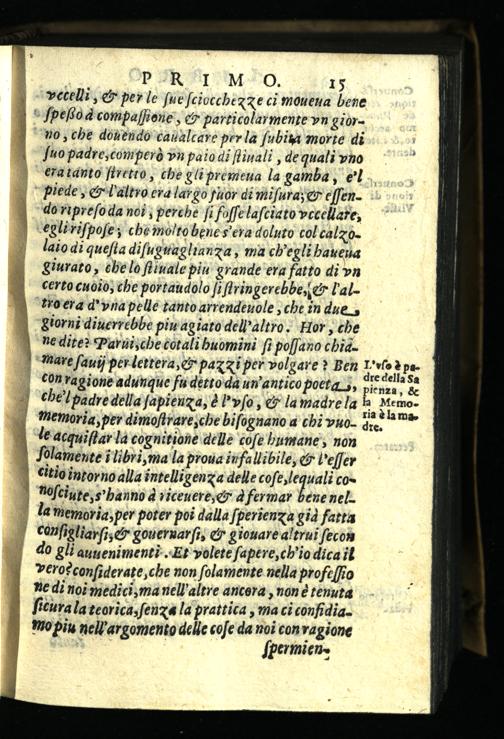 PRIMO. 15
vccelli, & per le sue sciocchezze ci moueua bene
spesso à compassione, & particolarmente vn gior-
no, che douendo caualcare per la subita morte di
suo padre, comperò vn paio di stiuali, de quali vno
era tanto stretto, che gli premeua la gamba, e'l
piede, & l'altro era largo fuor di misura; & essen-
do ripreso da noi, perche si fosse lasciato vccellare,
egli rispose; che molto bene s'era doluto col calzo-
laio di questa disuguaglianza, ma ch'egli haueua
giurato, che lo stiuale piu grande era fatto di vn
certo cuoio, che portandolo si stringerebbe, & l'al-
tro era d'vna pelle tanto arrendeuole, che in due
giorni diuerrebbe piu agiato dell'altro. Hor, che
ne dite? Parui, che cotali huomini si possano chia-
mare sauij per lettera, & pazzi per volgare? Ben
con ragione adunque fu detto da un'antico poeta,
che'l padre della sapienza, è l'vso, & la madre la
memoria, per dimostrare, che bisognano a chi vuo-
le acquistar la cognitione delle cose humane, non
solamente i libri, ma la proua infallibile, & l'esser
citio intorno alla intelligenza delle cose, lequali co-
nosciute, s'hanno à riceuere, & à fermar bene nel-
la memoria, per poter poi dalla sperienza già fatta
consigliarsi, & gouernarsi, & giouare altrui secon
do gli auuenimenti. Et volete sapere, ch'io dica il
vero? considerate, che non solamente nella professio
ne di noi medici, ma nell'altre ancora, non è tenuta
sicura la teorica, senza la prattica, ma ci confidia-
mo piu nell'argomento delle cose da noi con ragione
spermien-
L'vso è pa-
dre della Sa
pienza, &
la Memo-
ria è la ma-
dre.